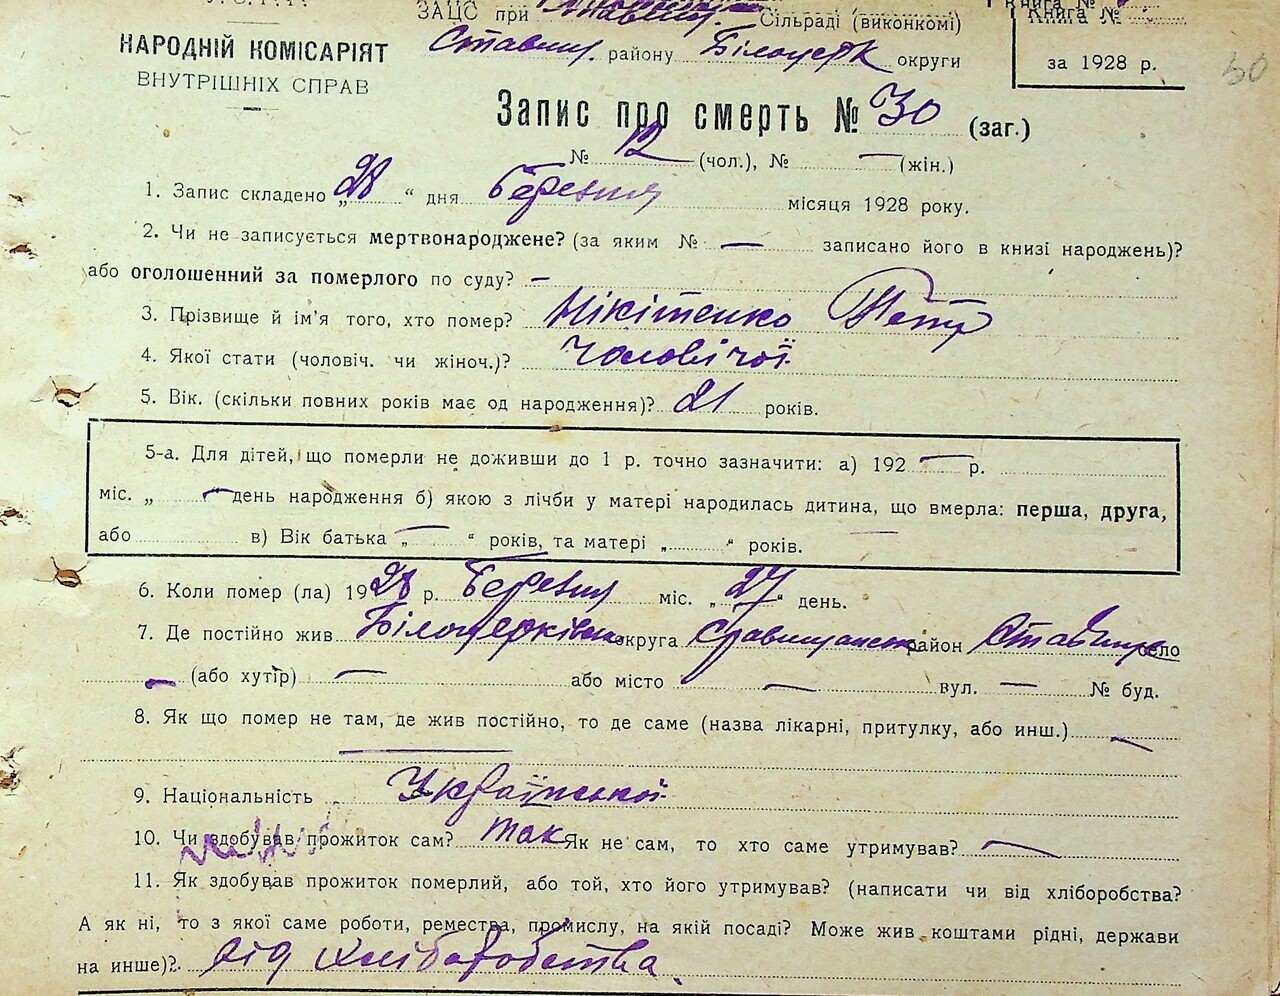 У.С.Р.Р.
ЗАЦС при Ставищ. Сільраді (виконкомі)
Книга №
НАРОДНІЙ КОМІСАРІЯТ
ВНУТРІШНІХ СПРАВ
Ставищ. району Білоцерк округи
за 1928 р.
30
Запис про смерть № 30 (заг.)
№ 12 (чол.), № — (жін.)
1. Запис складено „28“ дня березня місяця 1928 року.
2. Чи не записується мертвонароджене? (за яким № — записано його в книзі народжень)?
або оголошенний за померлого по суду? —
3. Прізвище й ім'я того, хто помер? Нікітенко Петр
4. Якої стати (чоловіч. чи жіноч.)? чоловічої
5. Вік. (скільки повних років має од народження)? 21 років.
5-а. Для дітей, що померли не доживши до 1 р. точно зазначити: а) 192 — р.
міс. „ — день народження б) якою з лічби у матері народилась дитина, що вмерла: перша, друга,
або в) Вік батька „ — “ років, та матері „ “ років.
6. Коли помер (ла) 1928 р. Березня міс. „27“ день.
7. Де постійно жив Білоцерківськ округа Ставищанськ район Ставище село
— (або хутір) — або місто — вул. — № буд.
8. Як що помер не там, де жив постійно, то де саме (назва лікарні, притулку, або инш.) —
9. Національність Української
10. Чи здобував прожиток сам? так Як не сам, то хто саме утримував? —
11. Як здобував прожиток померлий, або той, хто його утримував? (написати чи від хліборобства?
А як ні, то з якої саме роботи, ремества, промислу, на якій посаді? Може жив коштами рідні, держави
на инше)? від хліборобства